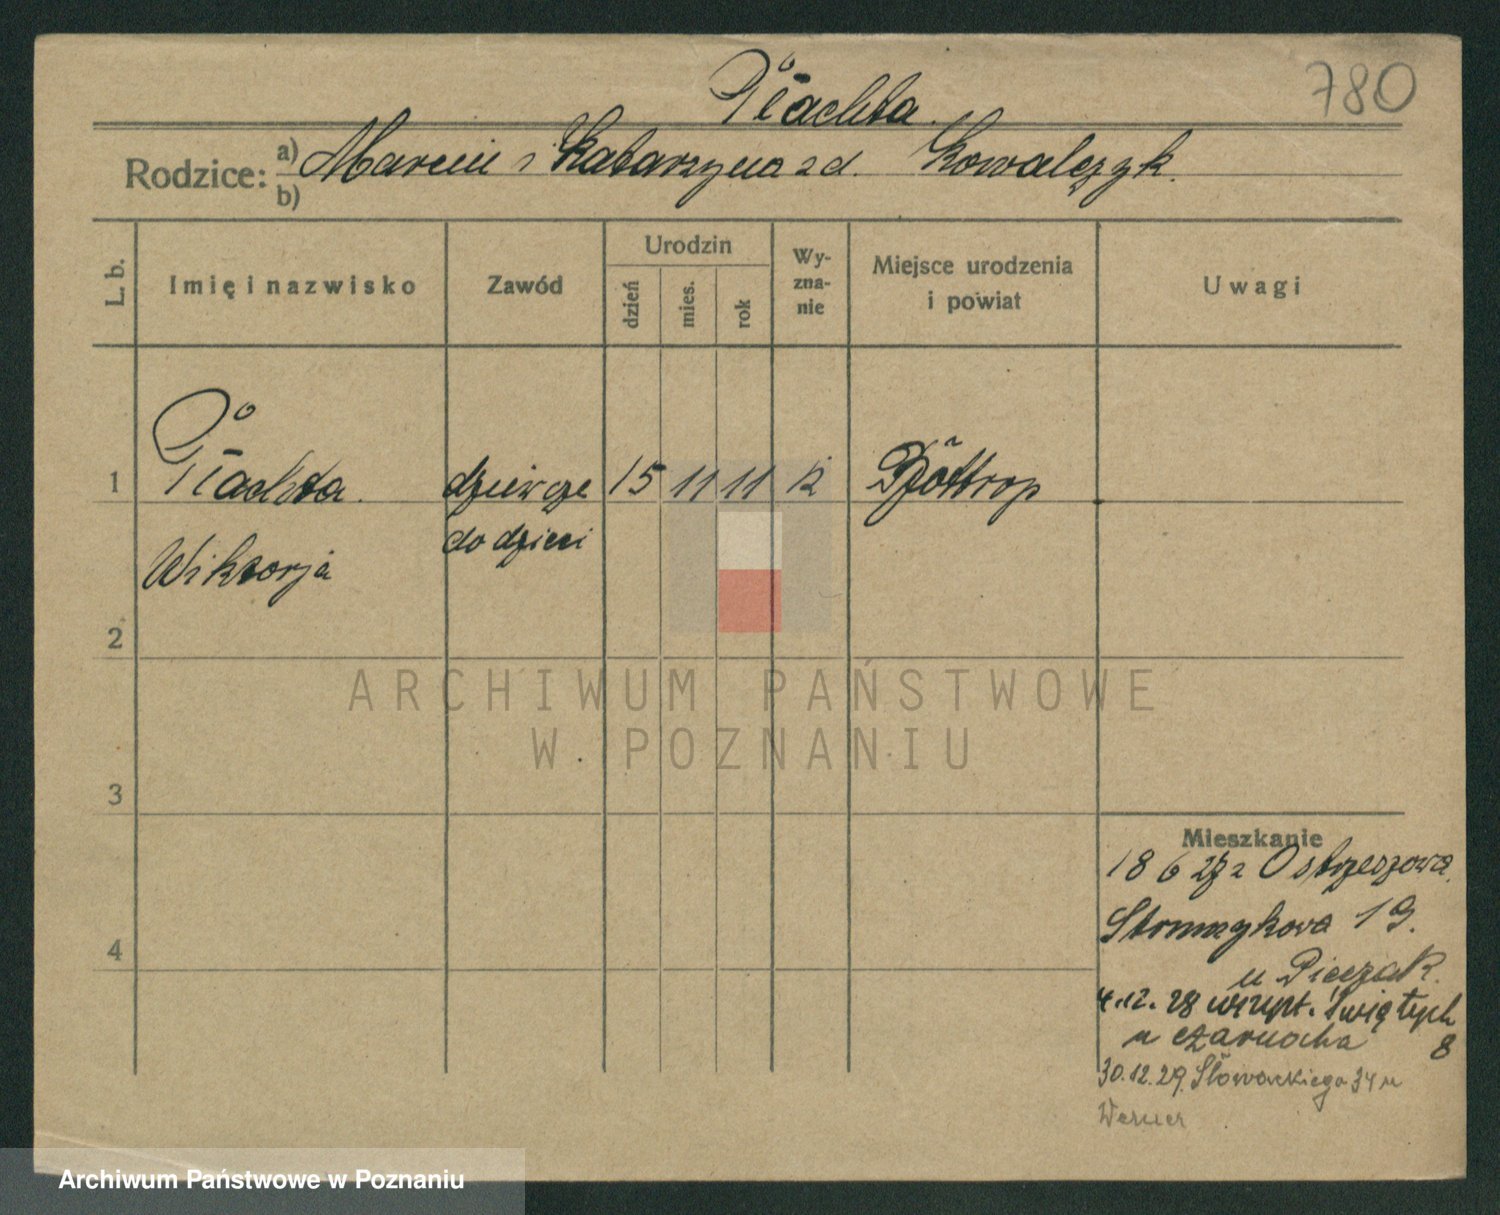 780
Płachta.
Rodzice: a) Marcin i Katarzyna zd. Kowalczyk.
b)
L. b.
Imię i nazwisko
Zawód
Urodzin
dzień
mies.
rok
Wy-
zna-
nie
Miejsce urodzenia
i powiat
Uwagi
1 Płachta. dziewczę 15 11 11 k Bottrop
do dzieci
Wiktorja
2
3
4
Mieszkanie
18 6 27 z Ostrzeszowa
Strumykowa 19.
u Pięczak.
4.12.28 Świętych
u Czarnocha 8
30.12.29. Słowackiego 34 u
Werner
ARCHIWUM PAŃSTWOWE
W POZNANIU
Archiwum Państwowe w Poznaniu